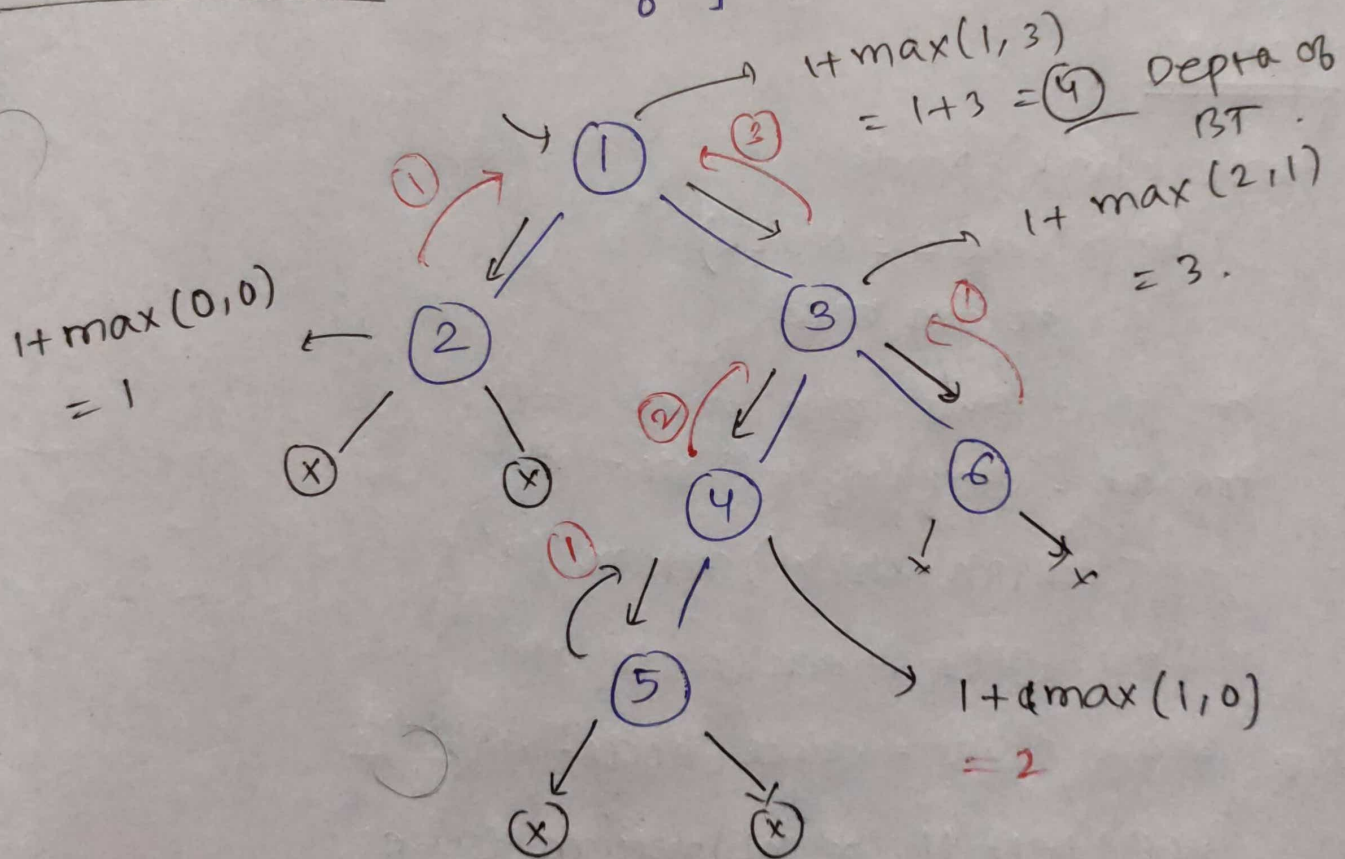 1+ max(1,3)
= 1+3 = 4 Depta of
BT .
1
3
1
1+ max (2,1)
= 3 .
1+ max (0,0)
= 1
2
3
1
2
x
x
4
6
x
x
1
5
1+ max (1,0)
= 2
x
x